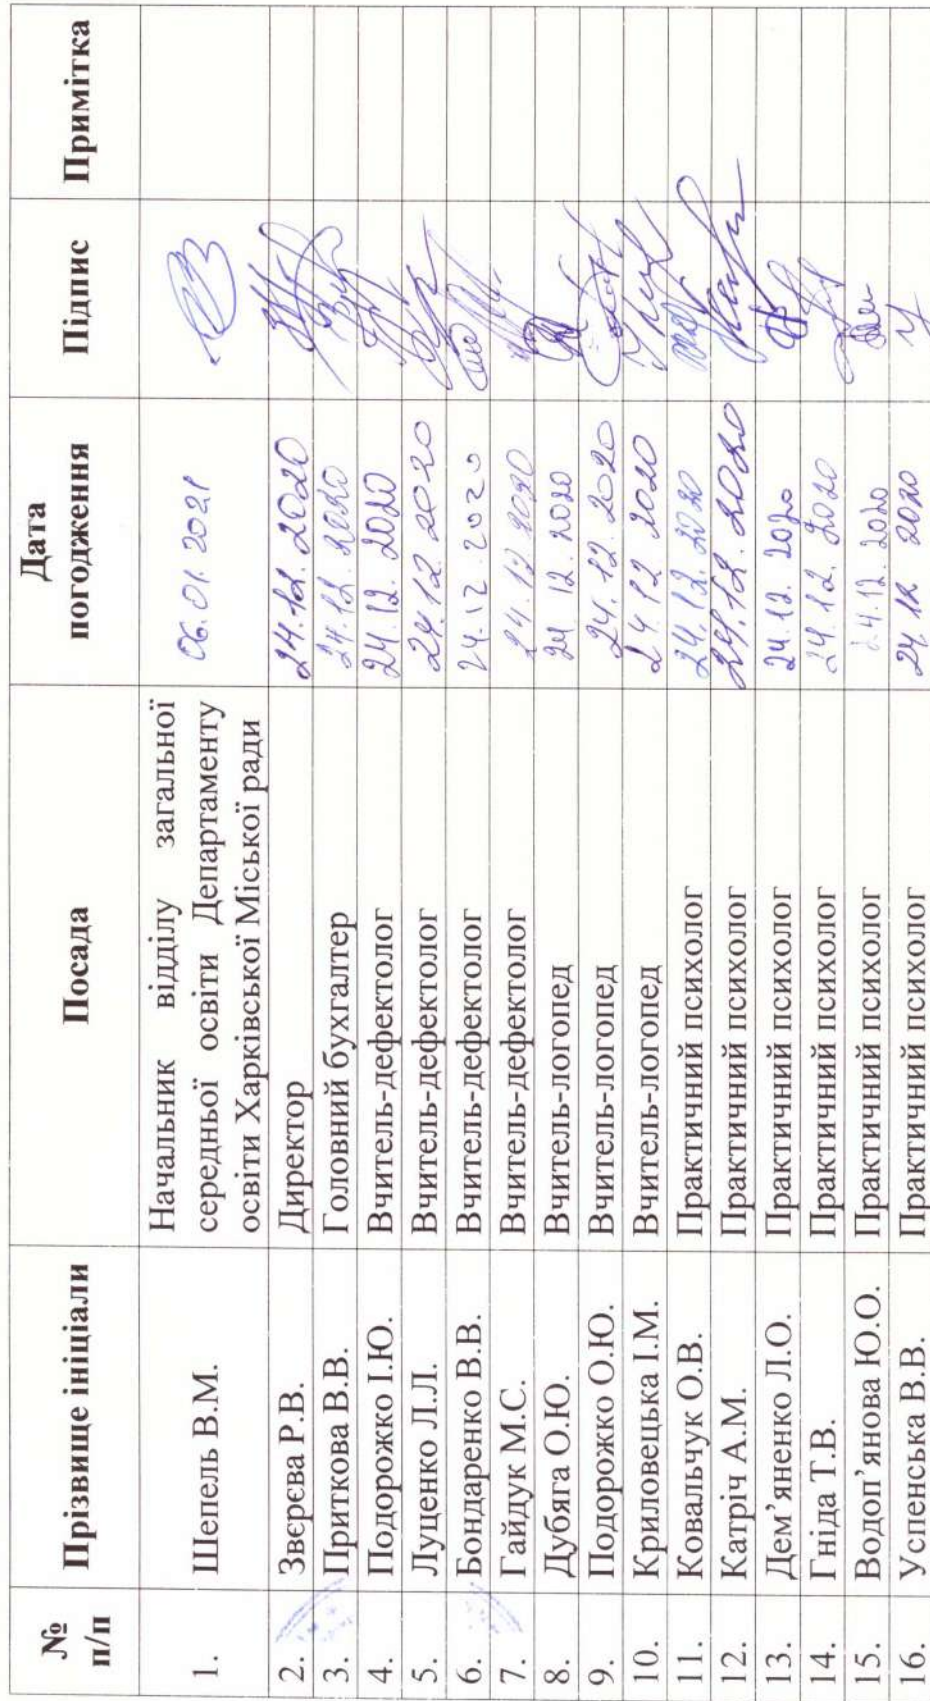 № п/п Прізвище ініціали Посада Дата погодження Підпис Примітка
1. Шепель В.М. Начальник відділу загальної
середньої освіти Департаменту
освіти Харківської Міської ради 06.01.2021
2. Звєрєва Р.В. Директор 24.12.2020
3. Приткова В.В. Головний бухгалтер 24.12.2020
4. Подорожко І.Ю. Вчитель-дефектолог 24.12.2020
5. Луценко Л.Л. Вчитель-дефектолог 24.12.2020
6. Бондаренко В.В. Вчитель-дефектолог 24.12.2020
7. Гайдук М.С. Вчитель-дефектолог 24.12.2020
8. Дубяга О.Ю. Вчитель-логопед 24.12.2020
9. Подорожко О.Ю. Вчитель-логопед 24.12.2020
10. Криловецька І.М. Вчитель-логопед 24.12.2020
11. Ковальчук О.В. Практичний психолог 24.12.2020
12. Катріч А.М. Практичний психолог 24.12.2020
13. Дем’яненко Л.О. Практичний психолог 24.12.2020
14. Гніда Т.В. Практичний психолог 24.12.2020
15. Водоп’янова Ю.О. Практичний психолог 24.12.2020
16. Успенська В.В. Практичний психолог 24.12 2020